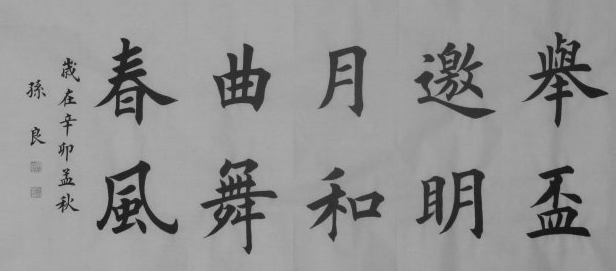 舉盃
邀明
月和
曲舞
春風
歲在辛卯孟秋
孫良